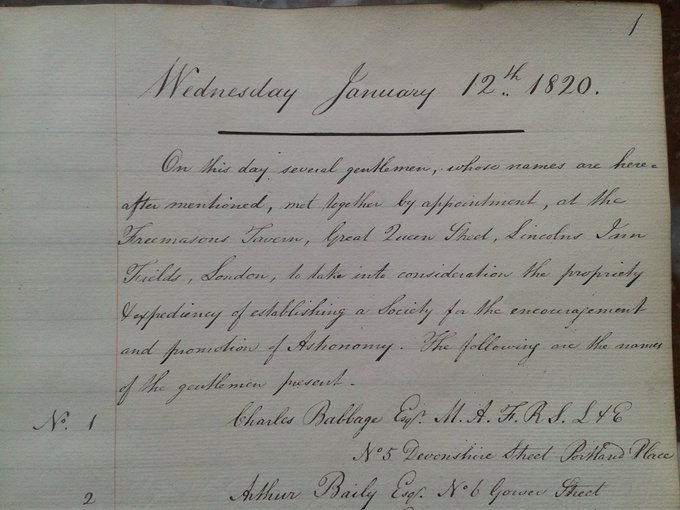 1
Wednesday January 12th. 1820.
On this day several gentlemen, whose names are here=
after mentioned, met together by appointment, at the
Freemasons Tavern, Great Queen Street, Lincolns Inn
Fields, London, to take into consideration the propriety
& expediency of establishing a Society for the encouragement
and promotion of Astronomy. The following are the names
of the gentlemen present.
No. 1 Charles Babbage Esqr. M. A. F. R. S. L & E
No 5 Devonshire Street Portland Place
2 Arthur Baily Esqr. No 6 Gower Street